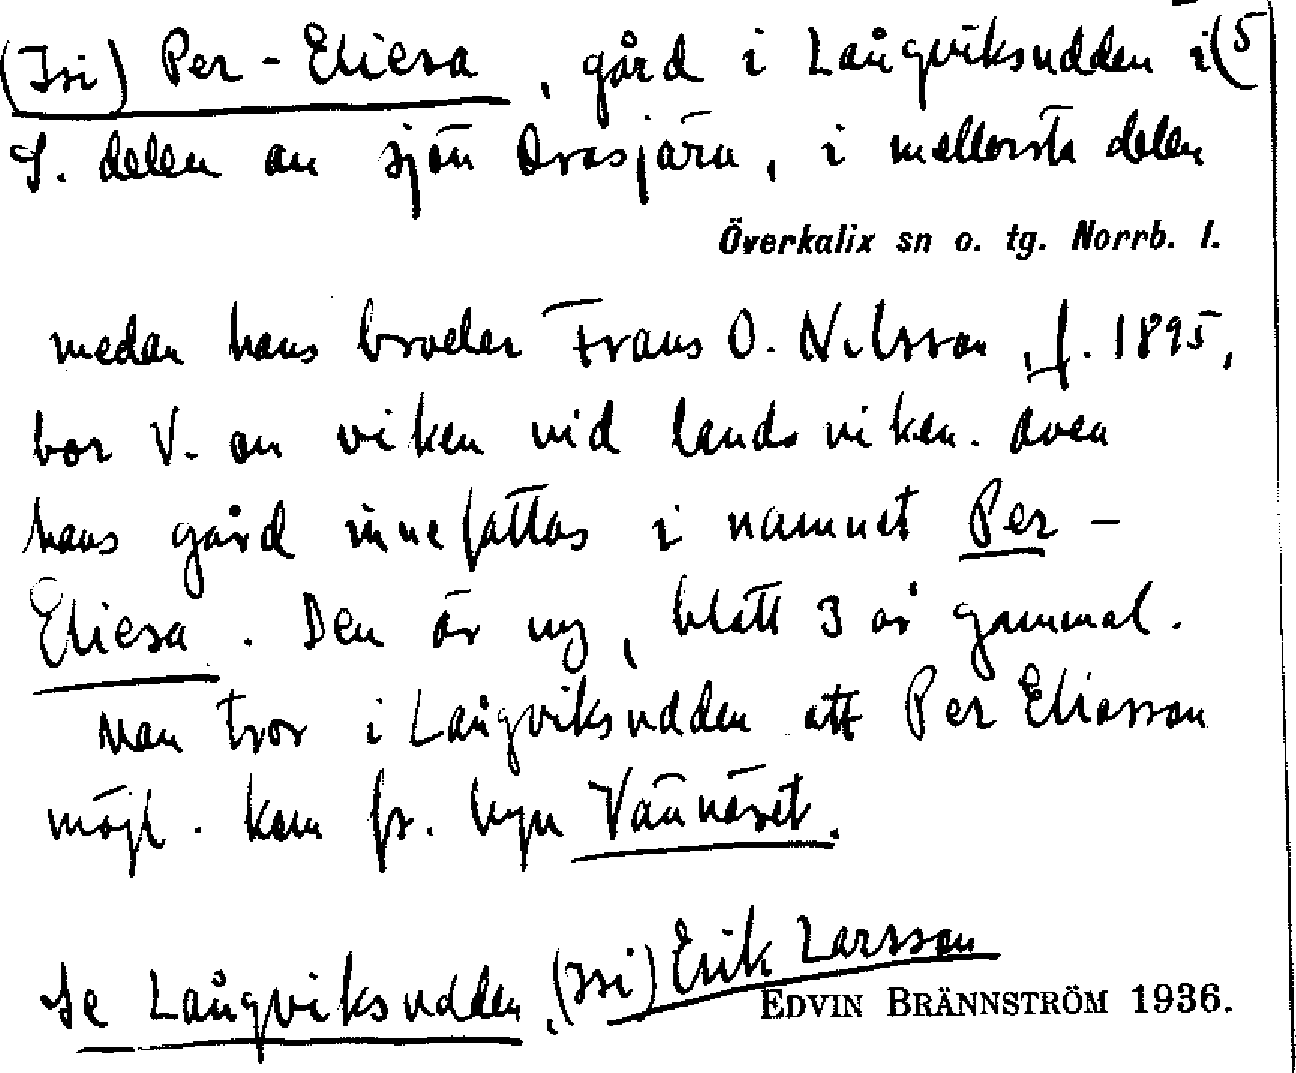 (Isi) Per-Eliesa, gård i Långviksudden i (5
S. delen av sjön Övasjärv, i mellersta delen
Överkalix sn o. tg. Norrb. l.
medan hans broder Frans O. Nilsson, f. 1895,
bor V. om viken vid landsviken. Även
hans gård innefattas i namnet Per-
Eliesa. Den är ny, blott 3 år gammal.
Man tror i Långviksudden att Per Eliasson
möjl. kom fr. byn Vännäset.
Se Långviksudden, (Isi) Erik Larsson
EDVIN BRÄNNSTRÖM 1936.